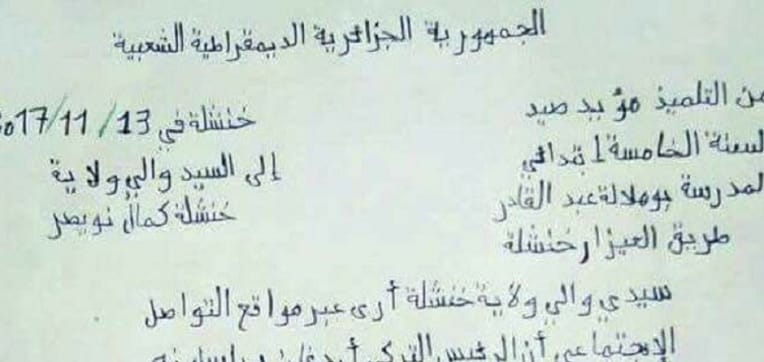 الجمهورية الجزائرية الديمقراطية الشعبية
من التلميذ مؤيد صيد
خنشلة في 13/11/2017
السنة الخامسة ابتدائي
إلى السيد والي ولاية
المدرسة بوهلالة عبد القادر
خنشلة كمال نويصر
طريق العيزار خنشلة
سيدي والي ولاية خنشلة أرى عبر مواقع التواصل
الإجتماعي أن الرئيس التركي